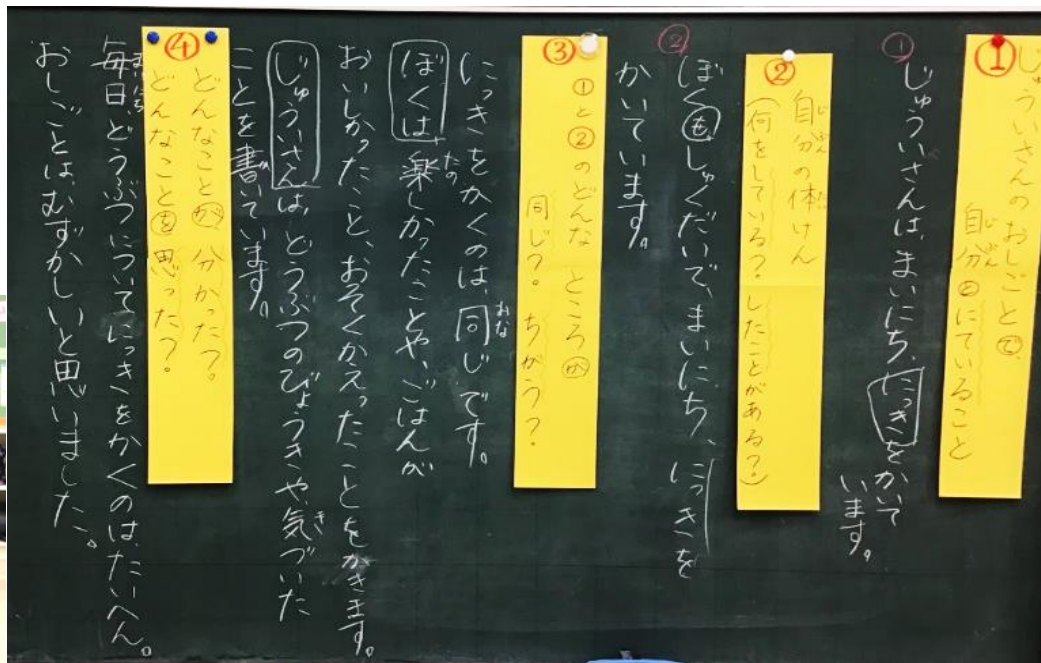 ①
じゅういさんのおしごとで、
自分とにていること
①
じゅういさんは、まいにち、にっきをかいて
います。
②
自分の体けん
(何をしている？したことがある？)
②
ぼくもしゅくだいで、まいにち、にっきを
かいています。
③
①と②のどんなところが
同じ？ちがう？
にっきをかくのは、同じです。
ぼくは、楽しかったことや、ごはんが
おいしかったこと、おそくかえったことをかきます。
じゅういさんは、どうぶつのびょうきや、気づいた
ことを書いています。
④
どんなことが分かった？
どんなことを思った？
毎日、どうぶつについてにっきをかくのは、たいへん。
おしごとは、むずかしいと思いました。